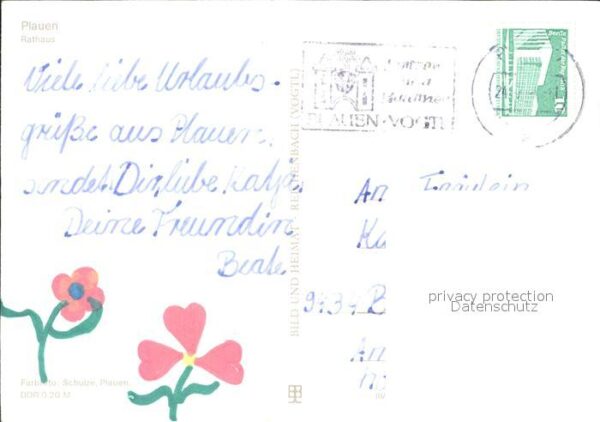 Plauen
Rathaus
Viele liebe Urlaubs-
grüße aus Plauen,
sendet Dir, liebe Katja
Deine Freundin
Beate
Farbfoto: Schulze, Plauen
DDR 0,20 M
BILD UND HEIMAT REICHENBACH (VOGTL)
PLAUEN · VOGTL
Berlin
10
An Fräulein
Ka
B
privacy protection
Datenschutz